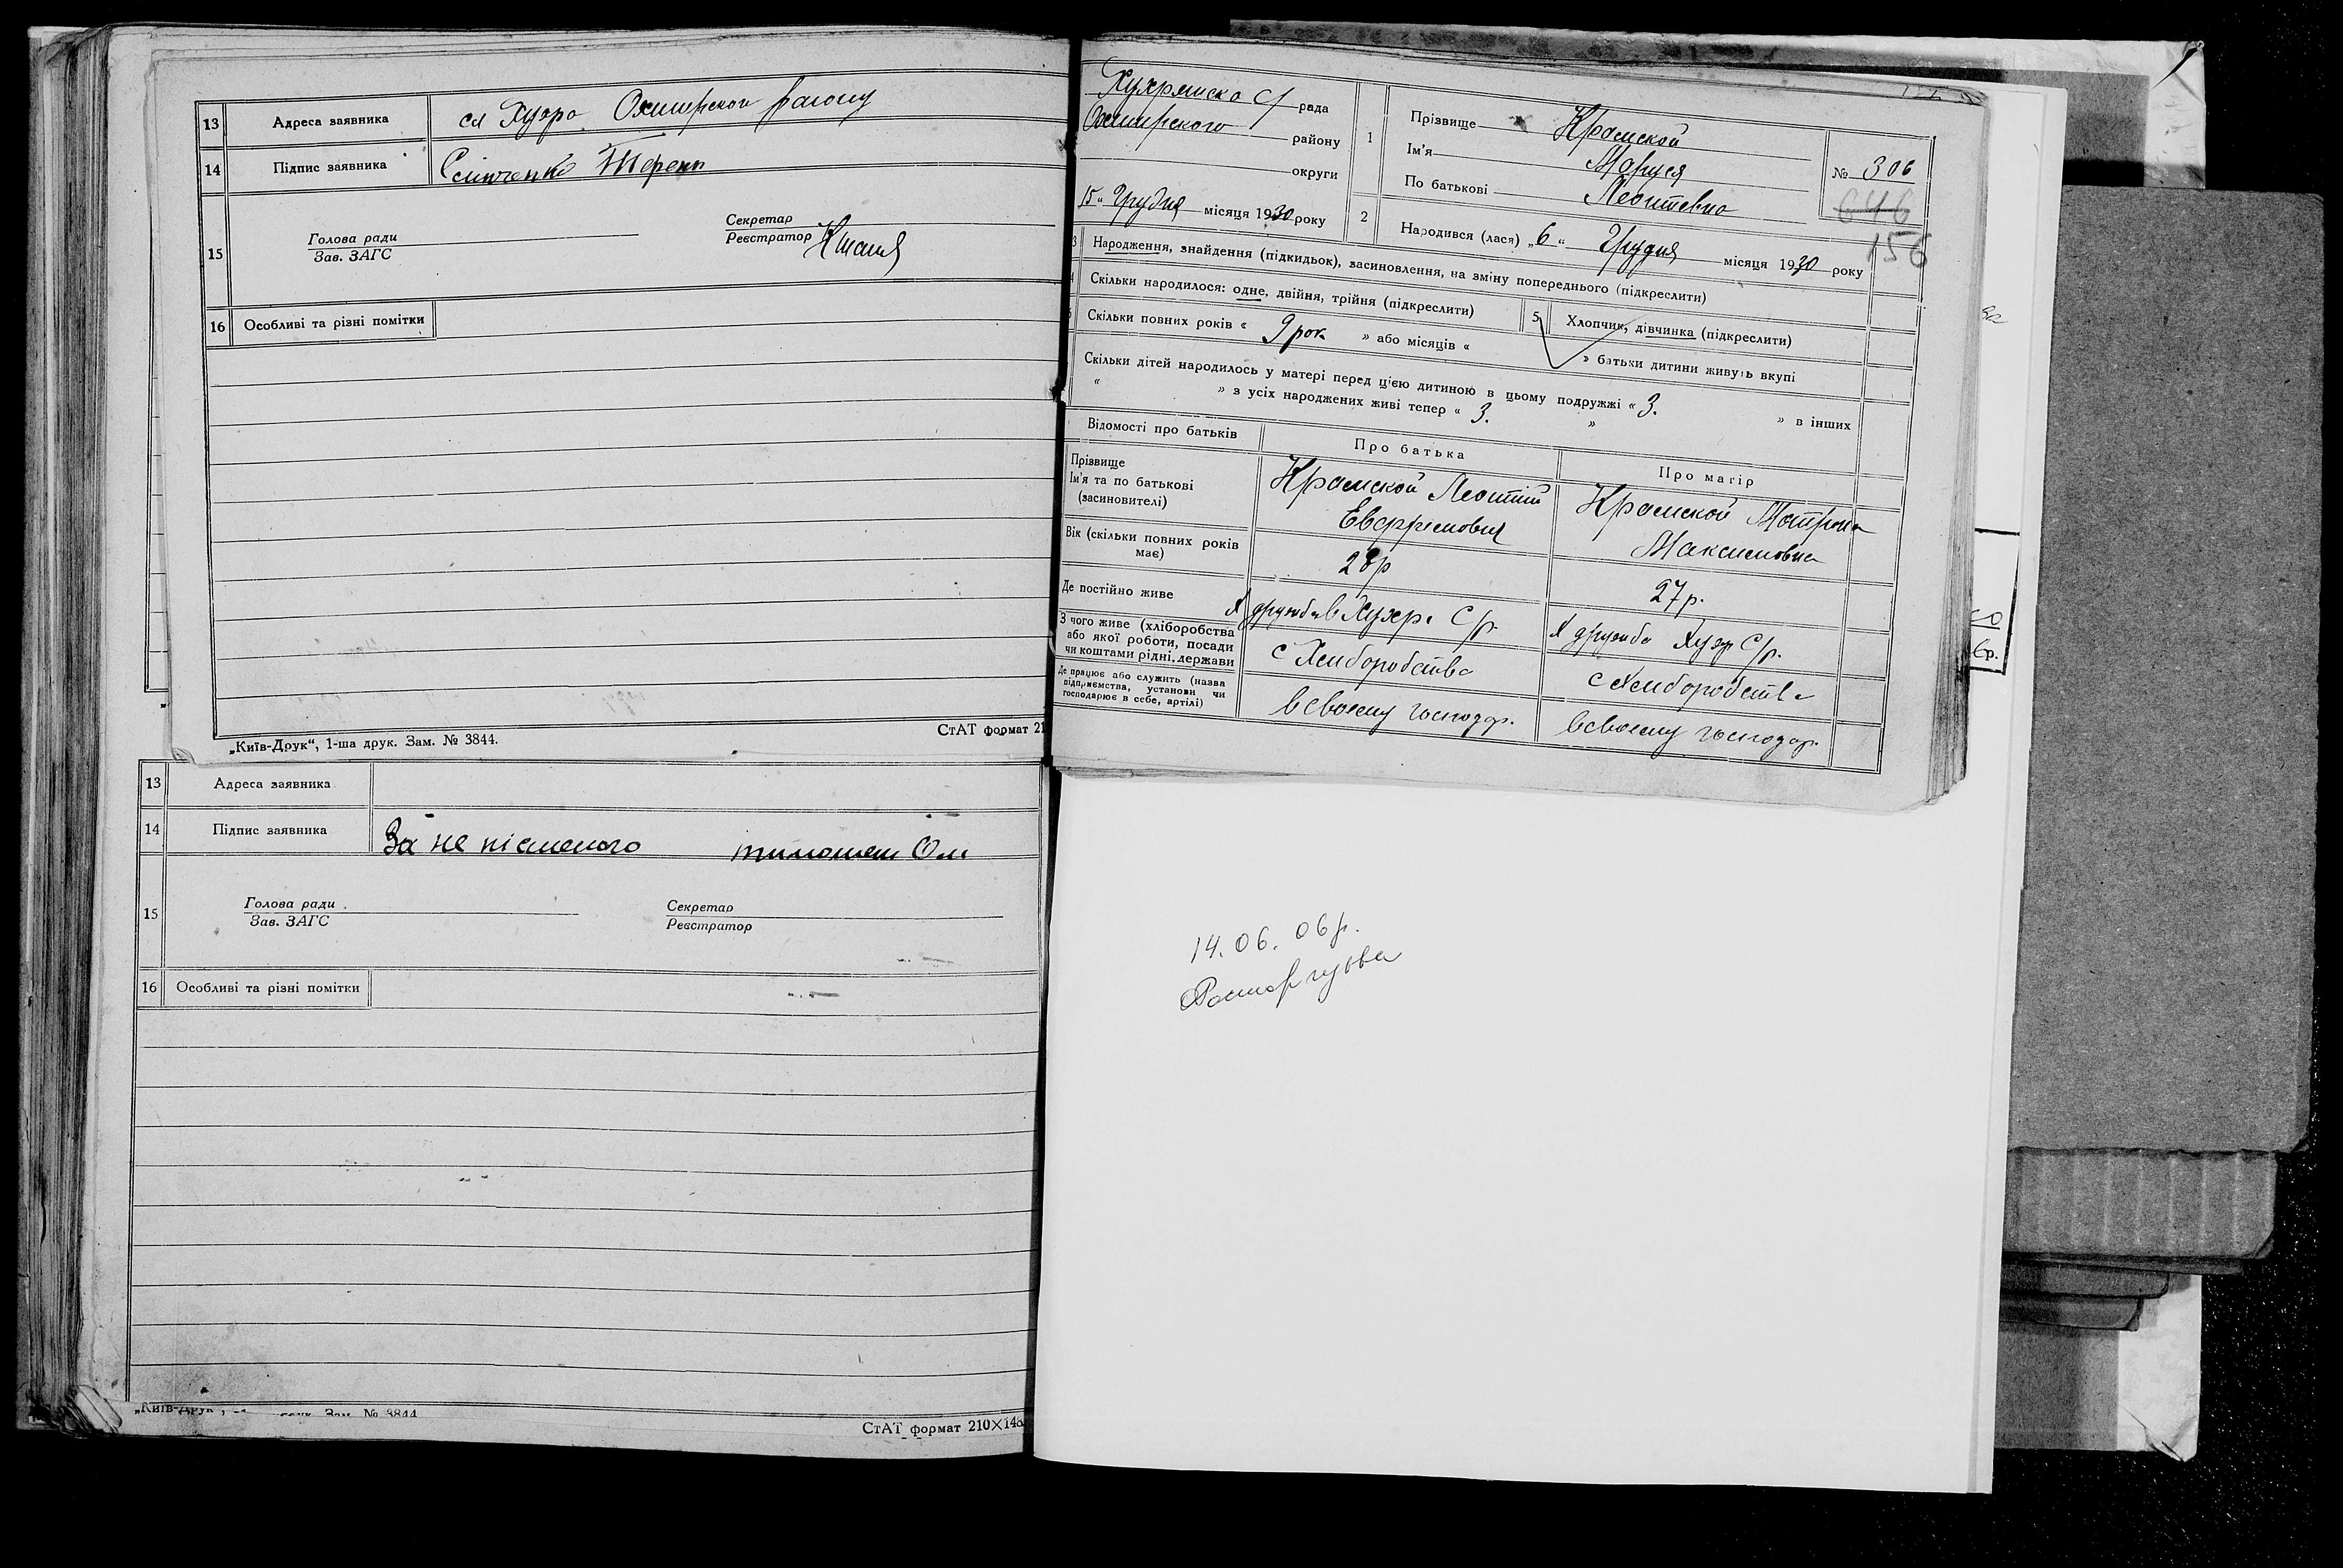 13 Адреса заявника сл Хухра Охтирской району
14 Підпис заявника Терень
15 Голова ради Зав. ЗАГС Секретар Реєстратор
16 Особливі та різні помітки
„Київ-Друк“, 1-ша друк. Зам. № 3844. СтАТ формат 21
13 Адреса заявника
14 Підпис заявника За не писменого
15 Голова ради Зав. ЗАГС Секретар Реєстратор
16 Особливі та різні помітки
„Київ-Друк Зам. № 3844
СтАТ формат 210×148
Хухрянска С/ рада
Охтирского району
округи
15 „ Грудня місяця 1930 року
1 Прізвище Крамской
Ім'я Маруся
По батькові Леонтевна
№ 306
646
156
2 Народився (лася) „6“ Грудня місяця 1930 року
3 Народження, знайдення (підкидьок), засиновлення, на зміну попереднього (підкреслити)
4 Скільки народилося: одне, двійня, трійня (підкреслити) 5 Хлопчик, дівчинка (підкреслити)
Скільки повних років « 9 рок » або місяців « » батьки дитини живуть вкупі
Скільки дітей народилось у матері перед цією дитиною в цьому подружжі « 3. » в інших
« » з усіх народжених живі тепер « 3. »
Відомості про батьків Про батька Про матір
Прізвище
Ім'я та по батькові
(засновителі)
Крамской Леонтій
Евфремович
Крамской Мотрона
Максимовна
Вік (скільки повних років має) 28р 27р.
Де постійно живе х дружба Хухр. С/р. х дружба Хухр С/р.
З чого живе (хліборобства або якої роботи, посади чи коштами рідні, держави с Хлиборобства с Хлиборобства
Де працює або служить (назва підприємства, установи чи господарює в себе, артілі) в своему господар. в своему господар.
14.06.06р.